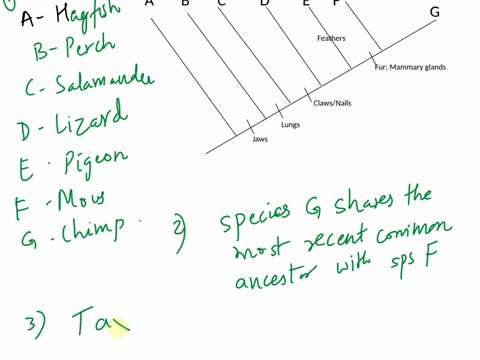 1)
A B C D E F
A- Hagfish
G
B- Perch
Feathers
C- Salamander
Fur; Mammary glands
Claws/Nails
D- Lizard
Lungs
Jaws
E - Pigeon
F - Mous
G - Chimp
2) species G shares the
most recent common
ancestor with sps F
3) Tax